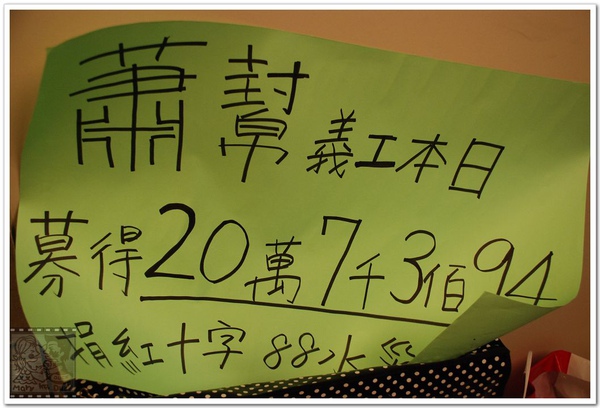 蕭幫義工本日
募得20萬7千3佰94
捐紅十字88水災